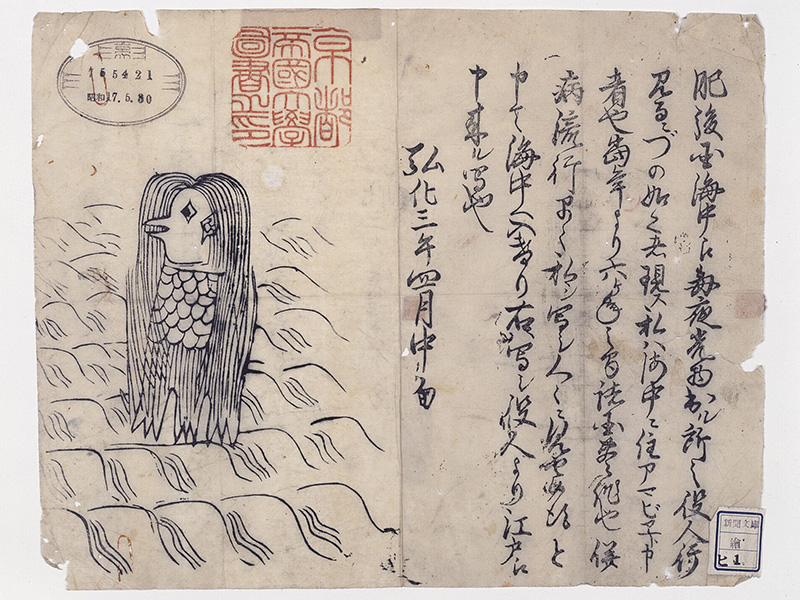 肥後国海中え毎夜光物出ル所之役人行
見るニづの如く者現ス私ハ海中ニ住アマビヱト申
者也当年より六ヶ年之間諸国豊作也併
病流行早々私ヲ写シ人々ニ見セ候得と
申て海中へ入けり右写シ役人より江戸え
申来ル写也
弘化三年四月中旬
京都
帝國大學
圖書之印
昭和17.5.30
新聞文庫
繪
ヒ 1